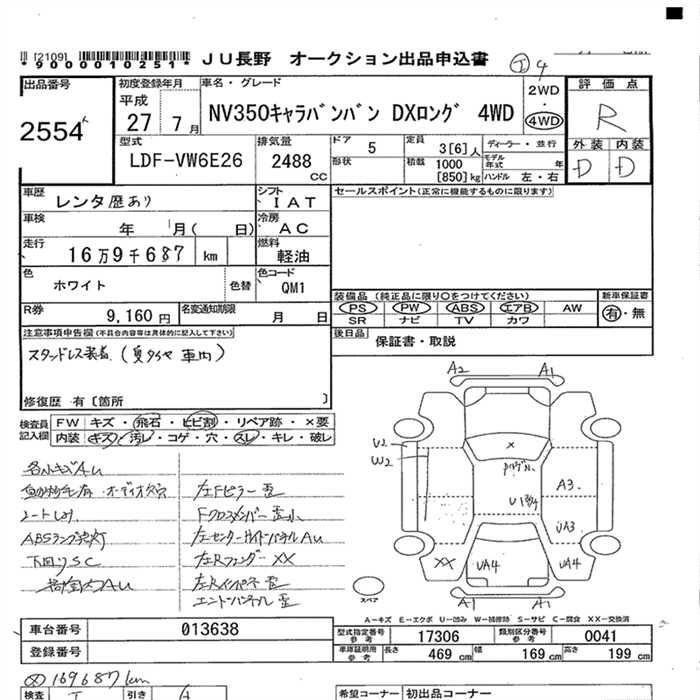 [2109]
*9000010251*
JU長野 オークション出品申込書
出品番号
2554
初度登録年月
平成
27 7月
車名・グレード
NV350キャラバンバン DXロング 4WD
2WD
・
4WD
評価点
R
外装 内装
D D
型式
LDF-VW6E26
排気量
2488
CC
ドア 5
形状
定員 3[6]人
積載 1000
[850]kg
ディーラー・並行
モデル年式 年
ハンドル 左・右
車歴
レンタ歴あり
シフト
IAT
車検 年 月( 日)
冷房
AC
走行
16万9千687 km
燃料
軽油
色
ホワイト
色替
色コード
QM1
R券
9,160円
名変通知期限
月 日
セールスポイント(正常に機能するものに限ります)
装備品 (純正品に限り○をつけてください)
PS PW ABS エアB AW
SR ナビ TV カワ
新車保証書
有・無
後日品
保証書・取説
注意事項申告欄(不具合内容等は具体的に記入して下さい)
スタッドレス装着 (夏タイヤ 車内)
修復歴 有〔箇所 〕
検査員
記入欄
FW キズ・飛石・ヒビ割・リペア跡・×要
内装 キズ・汚レ・コゲ・穴・スレ・キレ・破レ
各小キズAU
オーディオ欠
シートしみ
ABSランプ点灯
下回りSC
AU
左Fピラー歪
Fクロスメンバー歪小
左センターサイドパネルAU
左RフェンダーXX
左Rインパネ歪
エンドパネル歪
A2 A1
U2
W2
X
A3
UA3
XX UA4 UA4
A1 A1
スペア
A-キズ E-エクボ U-凹み W-補修跡 S-サビ C-腐食 XX-交換済
車台番号
013638
登録番号
型式指定番号
参考
17306
類別区分番号
参考
0041
車庫証明用
参考
長さ 469 cm
幅 169 cm
高さ 199 cm
169687km
検査
引き
希望コーナー
初出品コーナー